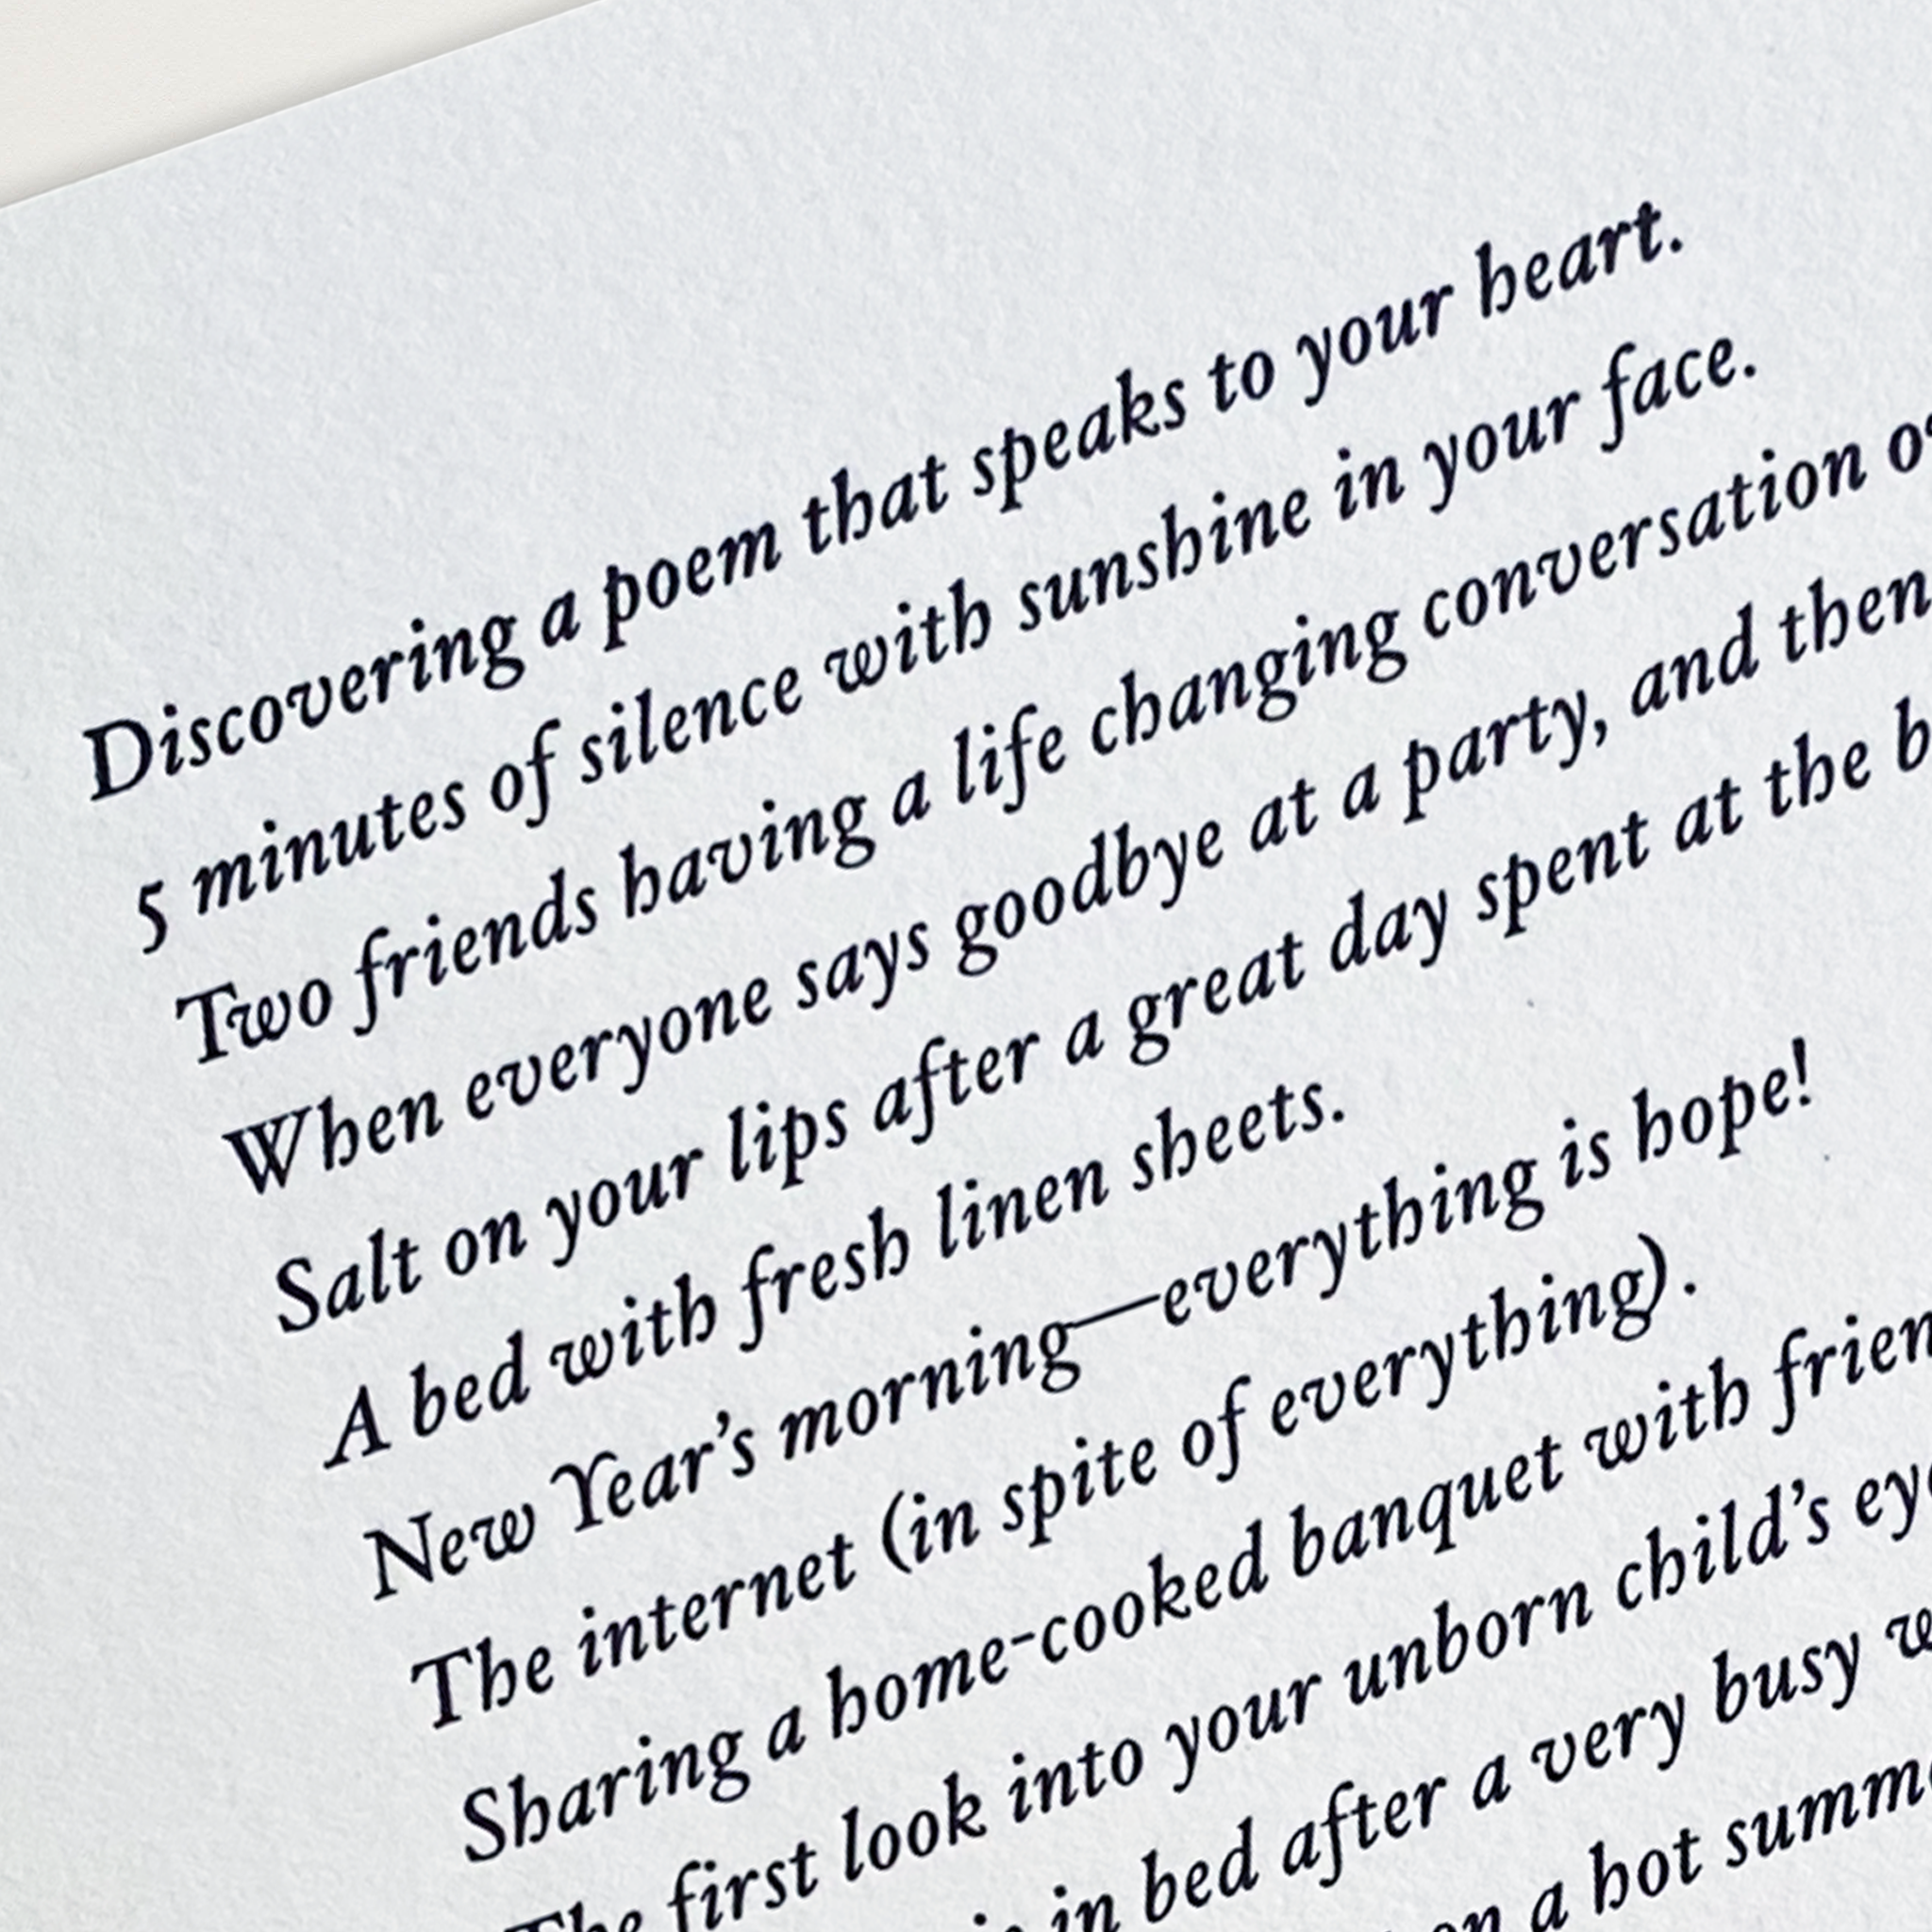 Discovering a poem that speaks to your heart.
5 minutes of silence with sunshine in your face.
Two friends having a life changing conversation
When everyone says goodbye at a party, and then
Salt on your lips after a great day spent at the
A bed with fresh linen sheets.
New Year’s morning—everything is hope!
The internet (in spite of everything).
Sharing a home-cooked banquet with
The first look into your unborn child’s
in bed after a very busy
a hot